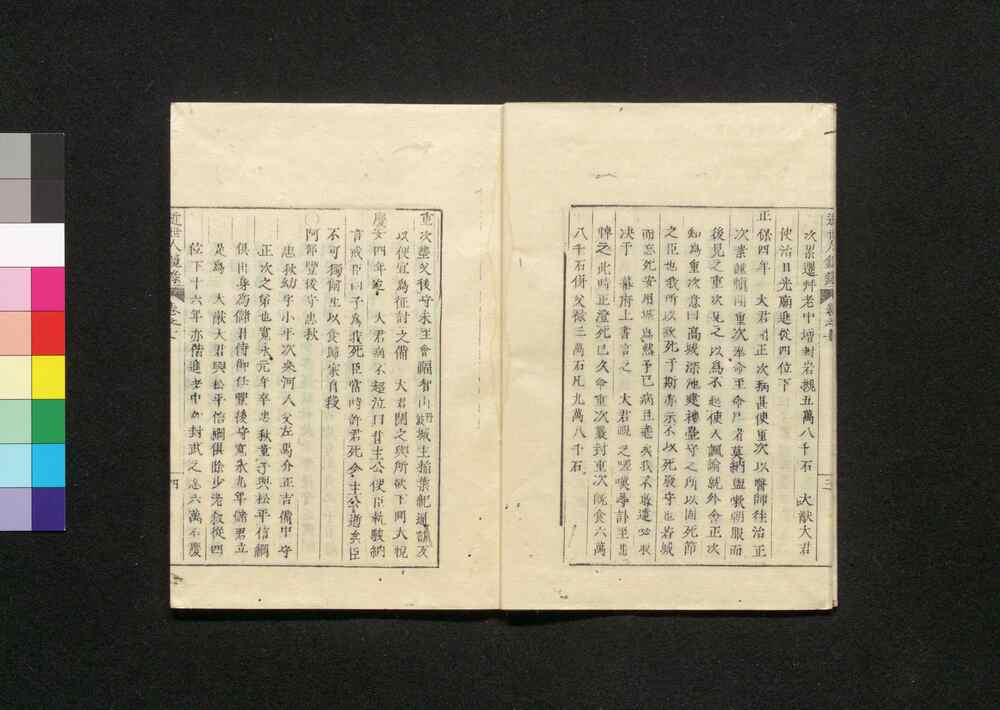 次累遷升老中増封岩槻五萬八千石　大猷大君
使治日光廟進從四位下
正保四年　大君聞正次病甚使重次以醫師往治正
次素謹慎聞重次奉命至命尸者莫納盥漱朝服而
後見之重次見之以為不起使人諷諭就外舍正次
知為重次意曰高城深池建禄臺守之所以固死節
之臣也我所以欲死于斯者示不以死廢守也若城
而忘死安用城為然予已病且老矣我不敢違公収
決于　幕府上書言之　大君覧之嗟嘆尋訃至悲
悼之此時正澄死已久命重次襲封重次既食六萬
八千石併父禄三萬石凡九萬八千石
重次塾父後守未至會福智山城主稲葉紀通謀反
以便宜為征討之備　大君聞之與所欲下同大悦
慶安四年　大君病不起泣曰昔主公使臣棄駿納
言戒臣曰子為我死臣當時許君死今主公逝矣臣
不可獨偷生以食歸家自殺
○阿部豐後守忠秋
忠秋幼字小平次参河人父左馬介正吉備中守
正次之弟也寛永元年卒忠秋童子與松平信綱
倶出身為儲君侍御任豐後守寛永九年儲君立
是為　大猷大君與松平信綱倶除少老敘從四
位下十六年亦偕進老中封武之忍六萬石慶
近世人鏡録　巻之一　三
近世人鏡録　巻之一　四